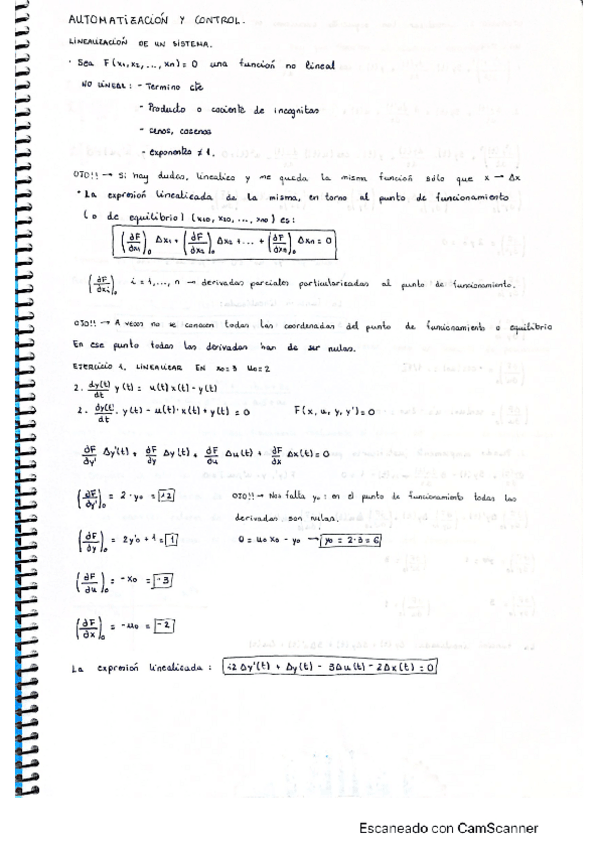 AUTOMATIZACIÓN Y CONTROL.
LINEALIZACIÓN DE UN SISTEMA.
· Sea F(x1, x2, ..., xn) = 0 una función no lineal
NO LINEAL: - Termino cte
- Producto o cociente de incognitas
- senos, cosenos
- exponentes ≠ 1.
OJO!! → Si hay dudas, linealizo y me queda la misma función sólo que x → Δx
· La expresión linealizada de la misma, en torno al punto de funcionamiento
(o de equilibrio) (x10, x20, ..., xn0) es:
(∂F/∂x1)0 Δx1 + (∂F/∂x2)0 Δx2 + ... + (∂F/∂xn)0 Δxn = 0
(∂F/∂xi)0 i = 1, ..., n → derivadas parciales particularizadas al punto de funcionamiento.
OJO!! → A veces no se conocen todas las coordenadas del punto de funcionamiento o equilibrio
En ese punto todas las derivadas han de ser nulas.
EJERCICIO 1. LINEALIZAR EN x0=3 u0=2
2. dy(t)/dt y(t) = u(t) x(t) - y(t)
2. dy(t)/dt · y(t) - u(t)·x(t) + y(t) = 0 F(x, u, y, y') = 0
∂F/∂y' Δy'(t) + ∂F/∂y Δy(t) + ∂F/∂u Δu(t) + ∂F/∂x Δx(t) = 0
(∂F/∂y')0 = 2·y0 = 12 OJO!! → Nos falta y0: en el punto de funcionamiento todas las
derivadas son nulas.
(∂F/∂y)0 = 2y'0 + 1 = 1 0 = u0 x0 - y0 → y0 = 2·3 = 6
(∂F/∂u)0 = -x0 = -3
(∂F/∂x)0 = -u0 = -2
La expresión linealizada: 12 Δy'(t) + Δy(t) - 3Δu(t) - 2Δx(t) = 0
Escaneado con CamScanner